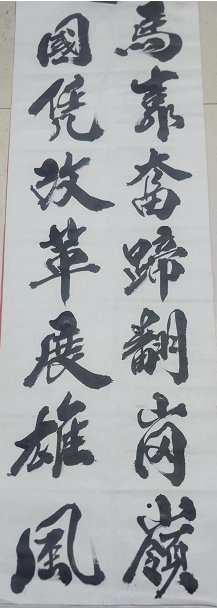 馬靠奮蹄翻崗嶺
國凭改革展雄風